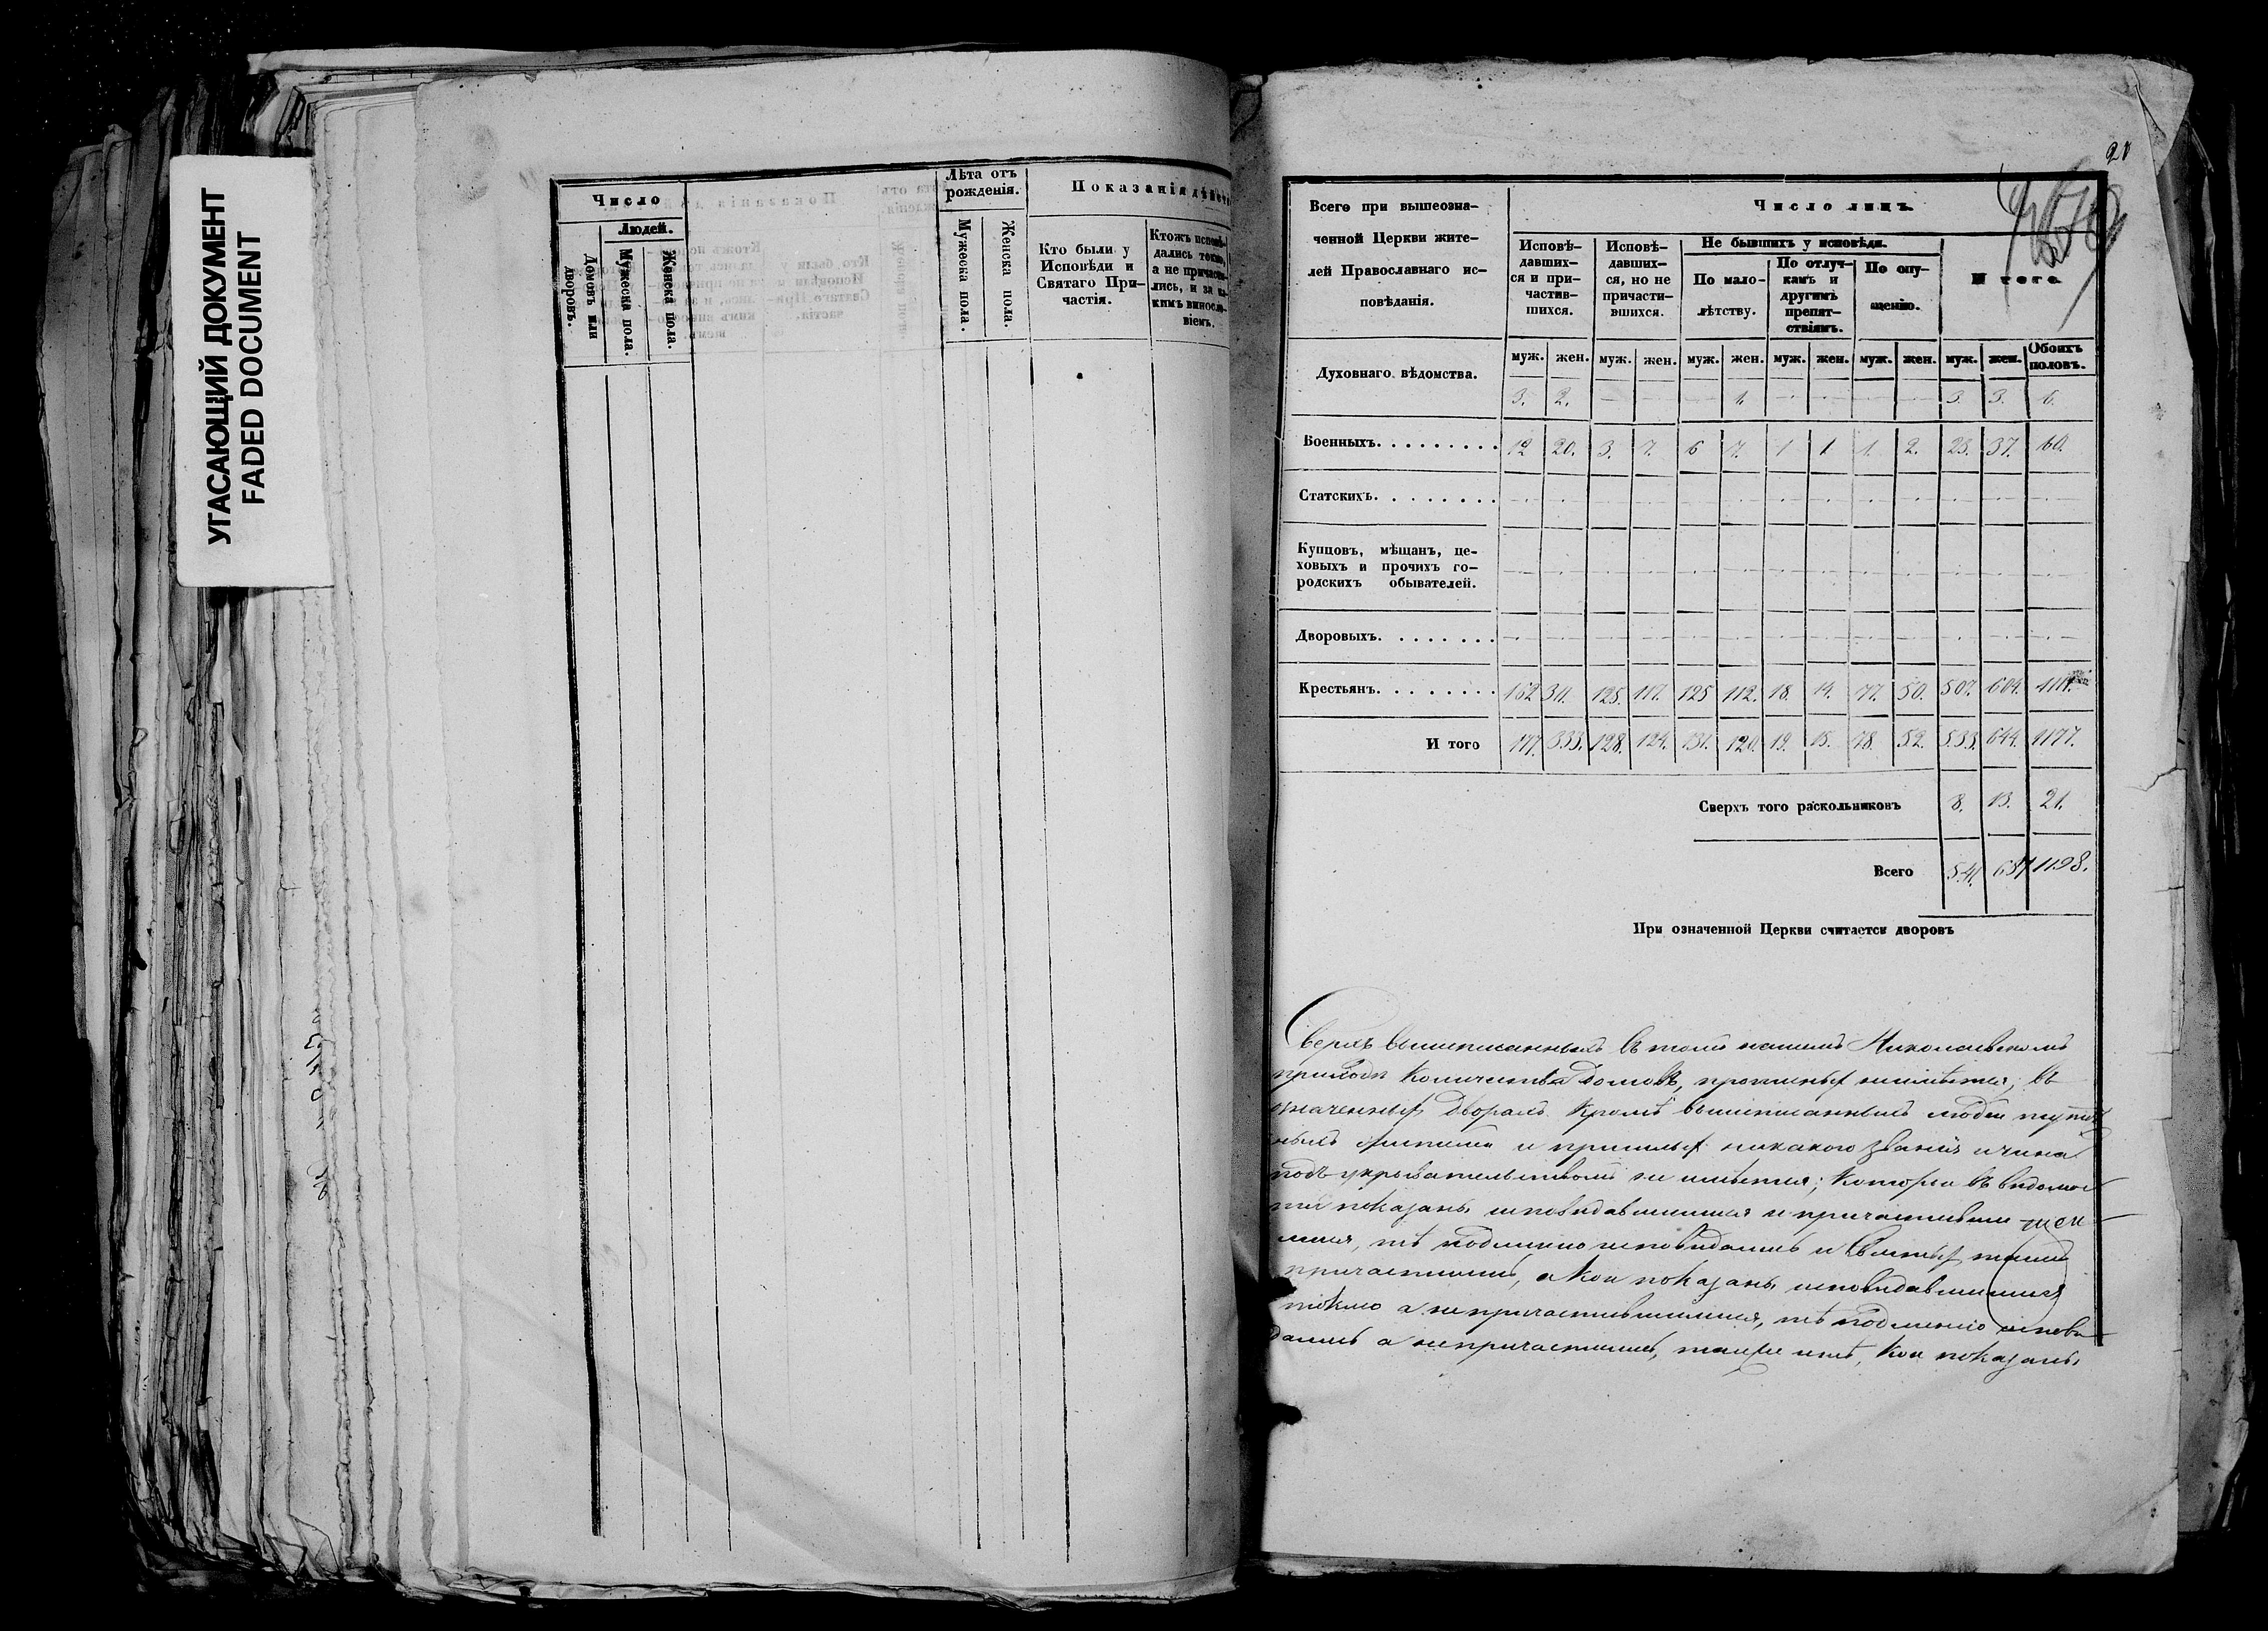 УГАСАЮЩИЙ ДОКУМЕНТ
FADED DOCUMENT
Число
Людей.
Домовъ или дворовъ.
Мужеска пола.
Женска пола.
Лѣта отъ рожденія.
Мужеска пола.
Женска пола.
Показанія
Кто были у
Исповѣди и
Святаго При-
частія.
Ктожъ испов
дались
а не
лись, и за
кимъ
віемъ.
Всего при вышеозна-
ченной Церкви жите-
лей Православнаго ис-
повѣданія.
Число лицъ
Исповѣ-
давших-
ся и при-
частив-
шихся.
Исповѣ-
давших-
ся, но не
причасти-
вшихся.
Не бывшихъ у исповѣди.
По мало-
лѣтству.
По отлуч-
камъ и
другимъ
препят-
ствіямъ.
По опу-
щенію.
Итого
муж. жен. муж. жен. муж. жен. муж. жен. муж. жен. муж. жен. Обоихъ половъ.
Духовнаго вѣдомства.
3. 2. — — — 1. 3. 3. 6.
Военныхъ. 12 20. 3. 7. 6 7. 1 1 1. 2. 23. 37. 60.
Статскихъ.
Купцовъ, мѣщанъ, це-
ховыхъ и прочихъ го-
родскихъ обывателей.
Дворовыхъ.
Крестьянъ. 162 311. 125. 117. 125 112. 18. 14. 77. 50. 507. 604. 1111.
И того 177. 333. 128. 124. 131. 120. 19. 15. 78. 52. 533. 644. 1177.
Сверхъ того раскольниковъ 8. 13. 21.
Всего 541. 657 1198.
При означенной Церкви считается дворовъ
Сверхъ вышеписанныхъ въ томъ нашемъ Николаевскомъ
приходѣ количества домовъ, протчихъ неимѣется; въ
означенныхъ дворахъ кромѣ вышеписанныхъ людей
и пришлыхъ никакого званія и чина
подъ укрывательствомъ не имѣется; которые въ вѣдомос
ти показаны исповѣдавшимися и причастивши
мися, тѣ подлинно исповѣдались и Святыхъ таинъ
причастились, а кои показаны исповѣдавшимися
токмо а непричастившимися, тѣ подлинно исповѣ
дались а непричастились, также и тѣ, кои показаны